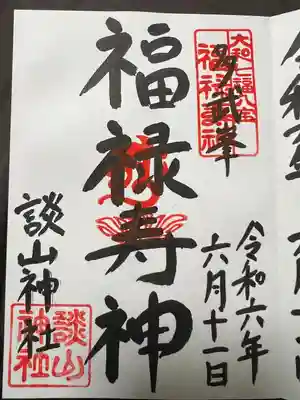 令和六年
六月十一日
大和七福八宝
多武峯
福禄寿神
談山神社
談山
神社